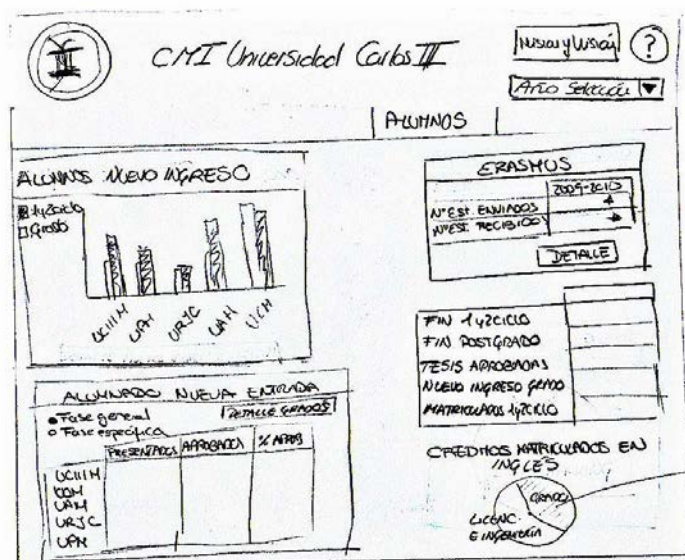 CMI Universidad Carlos III
Mision y Visión
?
Año Selección
ALUMNOS
ALUMNOS NUEVO INGRESO
1y2ciclo
Grado
UCIIIM
UPM
URJC
UAM
UCM
ERASMUS
2009-2010
Nº EST. ENVIADOS
Nº EST. RECIBIDOS
DETALLE
FIN 1y2CICLO
FIN POSTGRADO
TESIS APROBADAS
NUEVO INGRESO GRADO
MATRICULADOS 1y2CICLO
ALUMNADO NUEVA ENTRADA
Fase general
DETALLE GRADOS
Fase específica
PRESENTADOS APROBADOS % APROB
UCIIIM
UCM
UAM
URJC
UPM
CREDITOS MATRICULADOS EN
INGLÉS
GRADO
LICENC
E INGENIERÍA